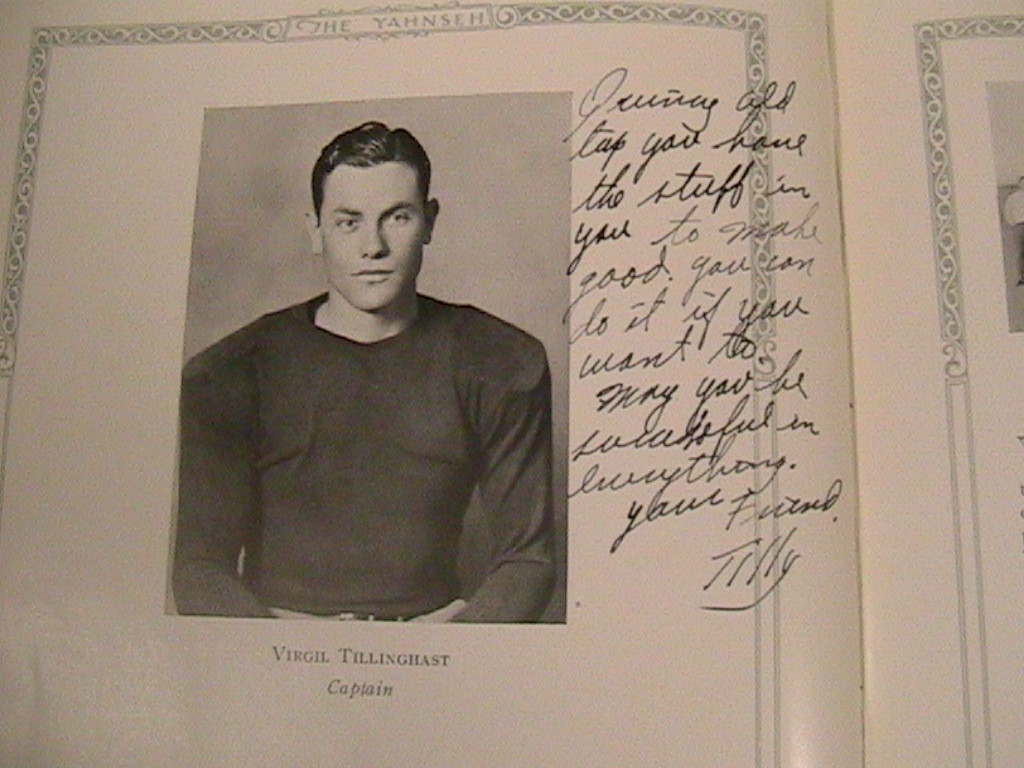 THE YAHNSEH
old
tap you have
the stuff in
you to make
good. you can
do it if you
want to.
May you be
successful in
everything.
your Friend
Tilly
VIRGIL TILLINGHAST
Captain